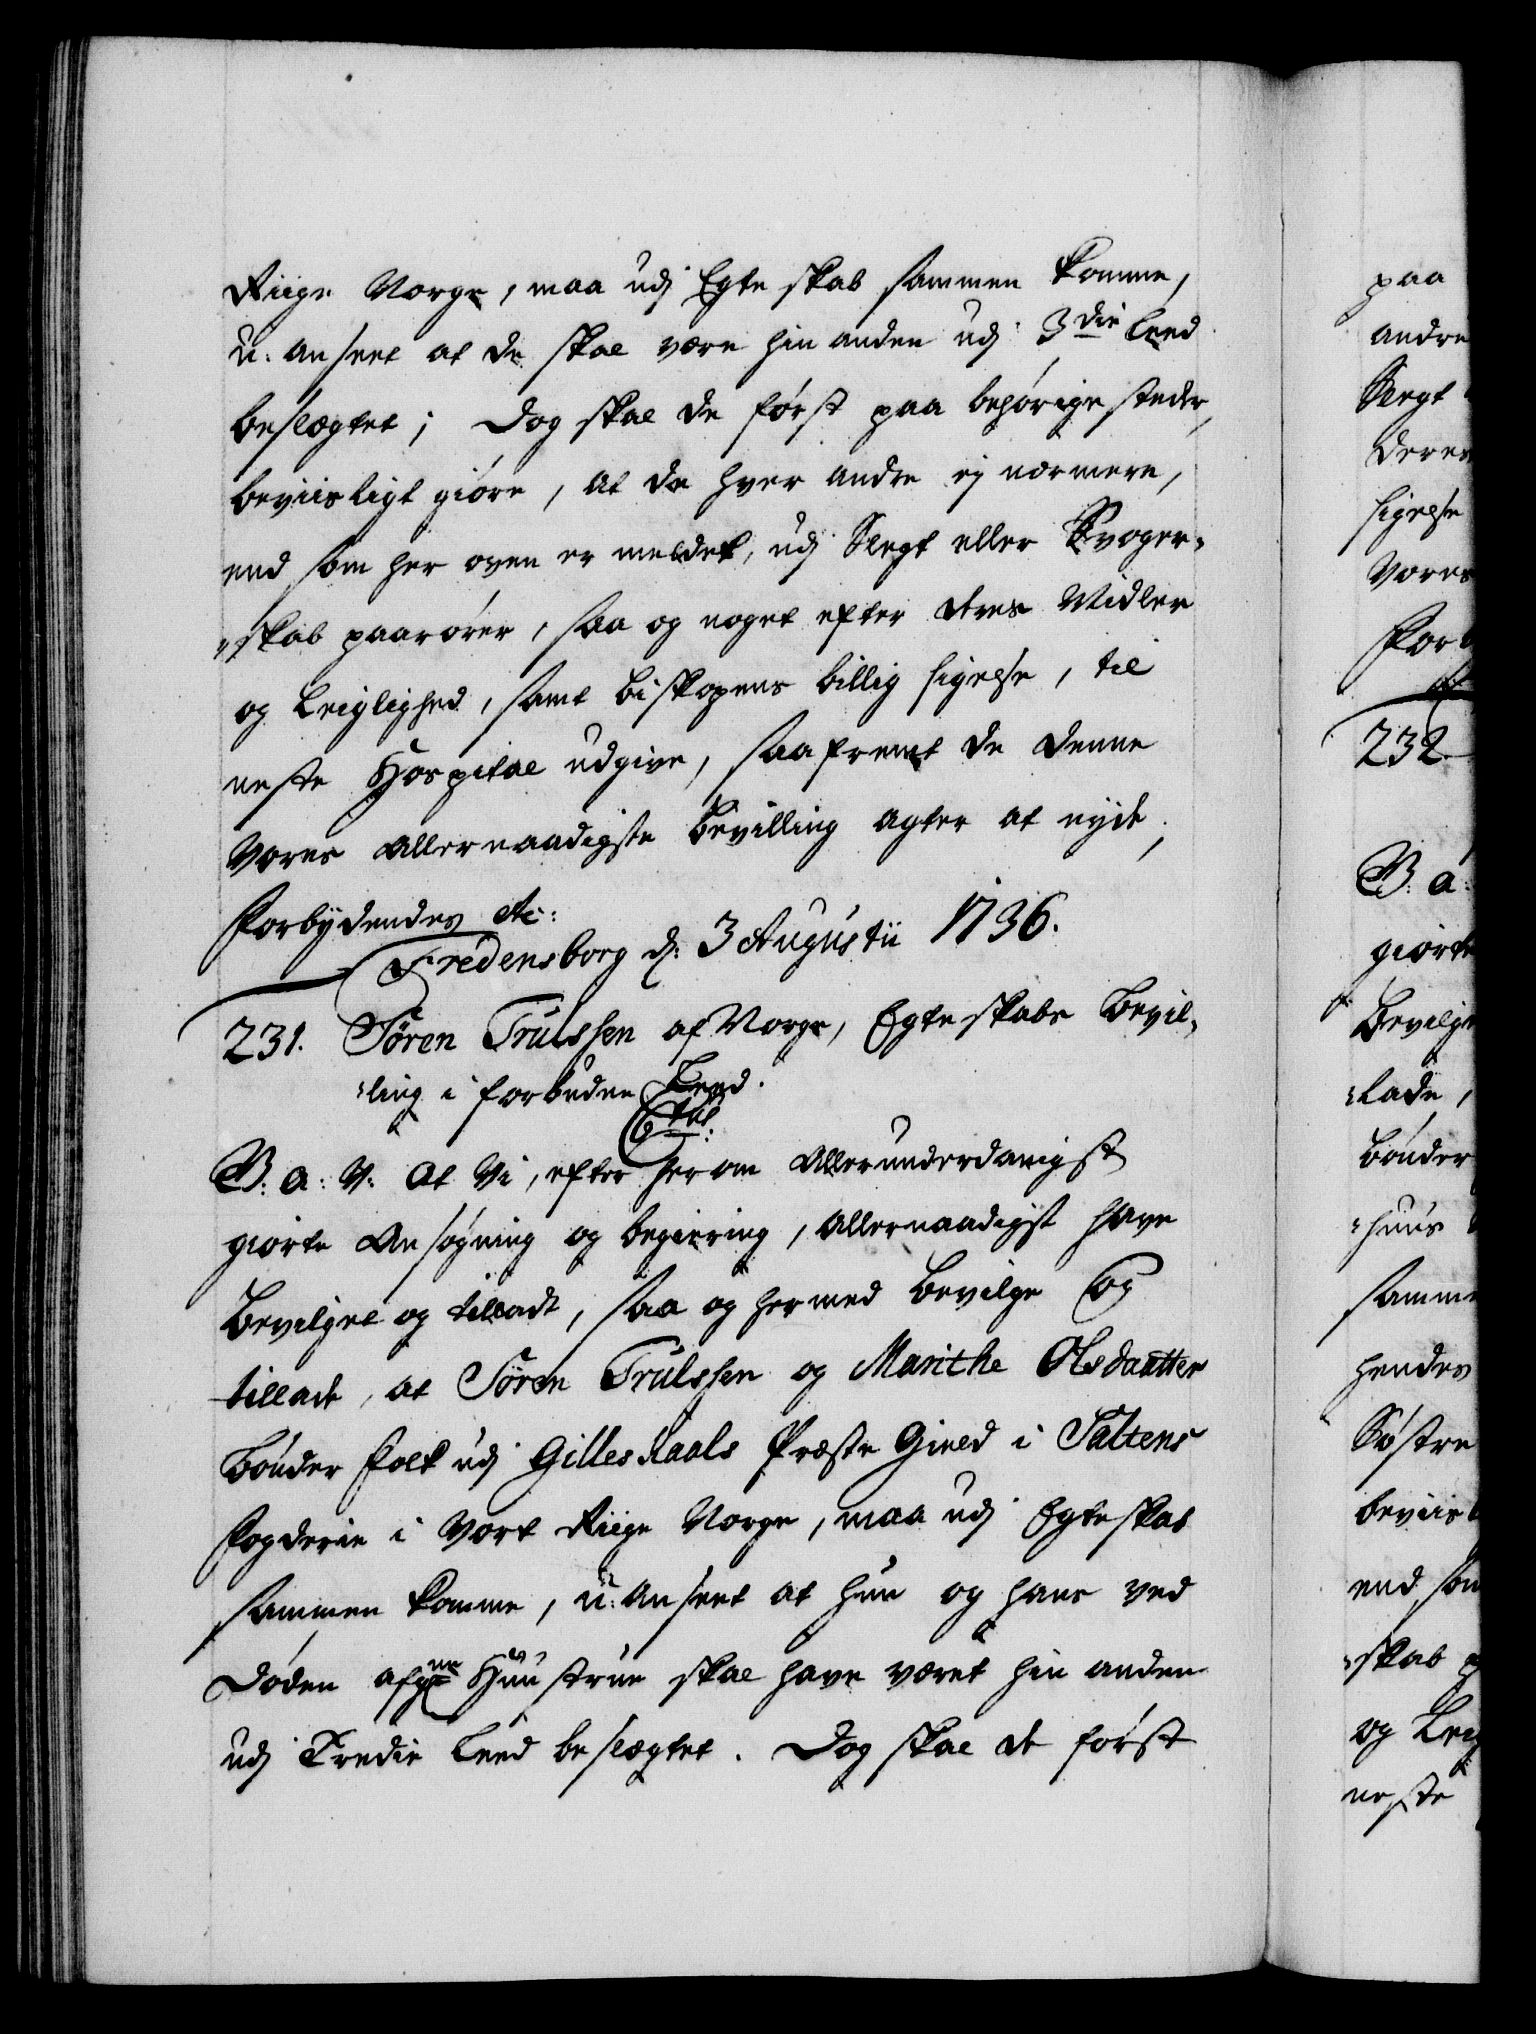 Riige Norge, maa udj Egte skab sammen komme,
u: anseet at de skal være hin anden udj 3die Leed
beslægtet; Dog skal de først paa behørige steder,
beviisligt giøre, at de hver andre ej nærmere,
end som her oven er meldet, udj Slegt eller Svoger-
skab paarører, saa og noget efter deres Midler
og Leiglighed, samt Biskopens billig sigelse, til
neste Hospital udgive, saafremt de denne
Vores allernaadigste Bevilling agter at nyde,
Forbydendes etc:
Fredensborg d: 3 Augustii 1736.
231. Søren Trulssen af Norge, Egteskabs Bevil-
ling i forbudne Leed.
B: a: V: at Vi, efter herom allerunderdanigst
giorte Ansøgning og begiering, allernaadigst have
Bevilget og tilladt, saa og hermed Bevilge og
tillade, at Søren Trulssen og Marithe Olsdautter
Bønder Folk udj Gillesdaals Præste Gield i Saltens
Fogderie i Vort Riige Norge, maa udj Egteskab
sammen komme, u: anseet at hun og hans ved
Døden afgne Huustrue skal have været hin anden
udj Tredie Leed beslægtet. Dog skal de først
paa
andre
Slegt
deres
sigelse
Vores
Forb
232
B: a:
giorte
Bevilge
lade,
Bønder
huus
samme
hendes
Søstre
beviis
end som
skab
og Leig
neste